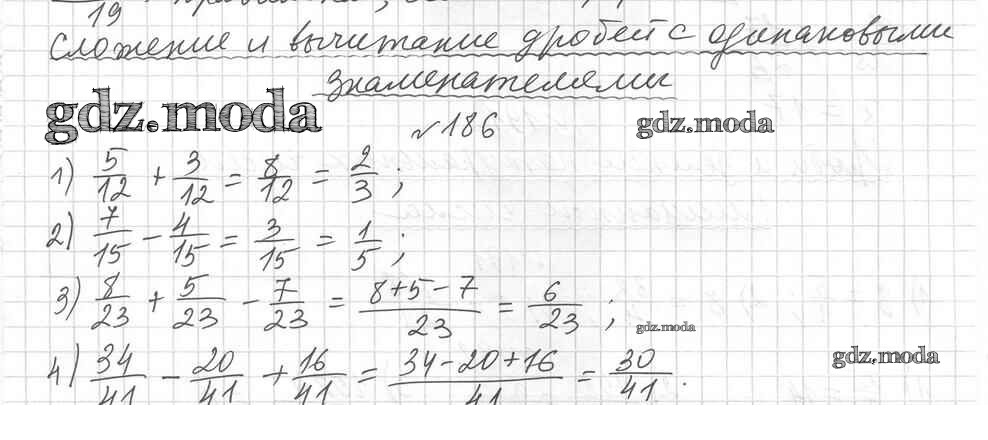 19
Сложение и вычитание дробей с одинаковыми
знаменателями
gdz.moda
№186
gdz.moda
1) 5/12 + 3/12 = 8/12 = 2/3 ;
2) 7/15 - 4/15 = 3/15 = 1/5 ;
3) 8/23 + 5/23 - 7/23 = 8+5-7/23 = 6/23 ;
gdz.moda
gdz.moda
4) 34/41 - 20/41 + 16/41 = 34-20+16/41 = 30/41 .